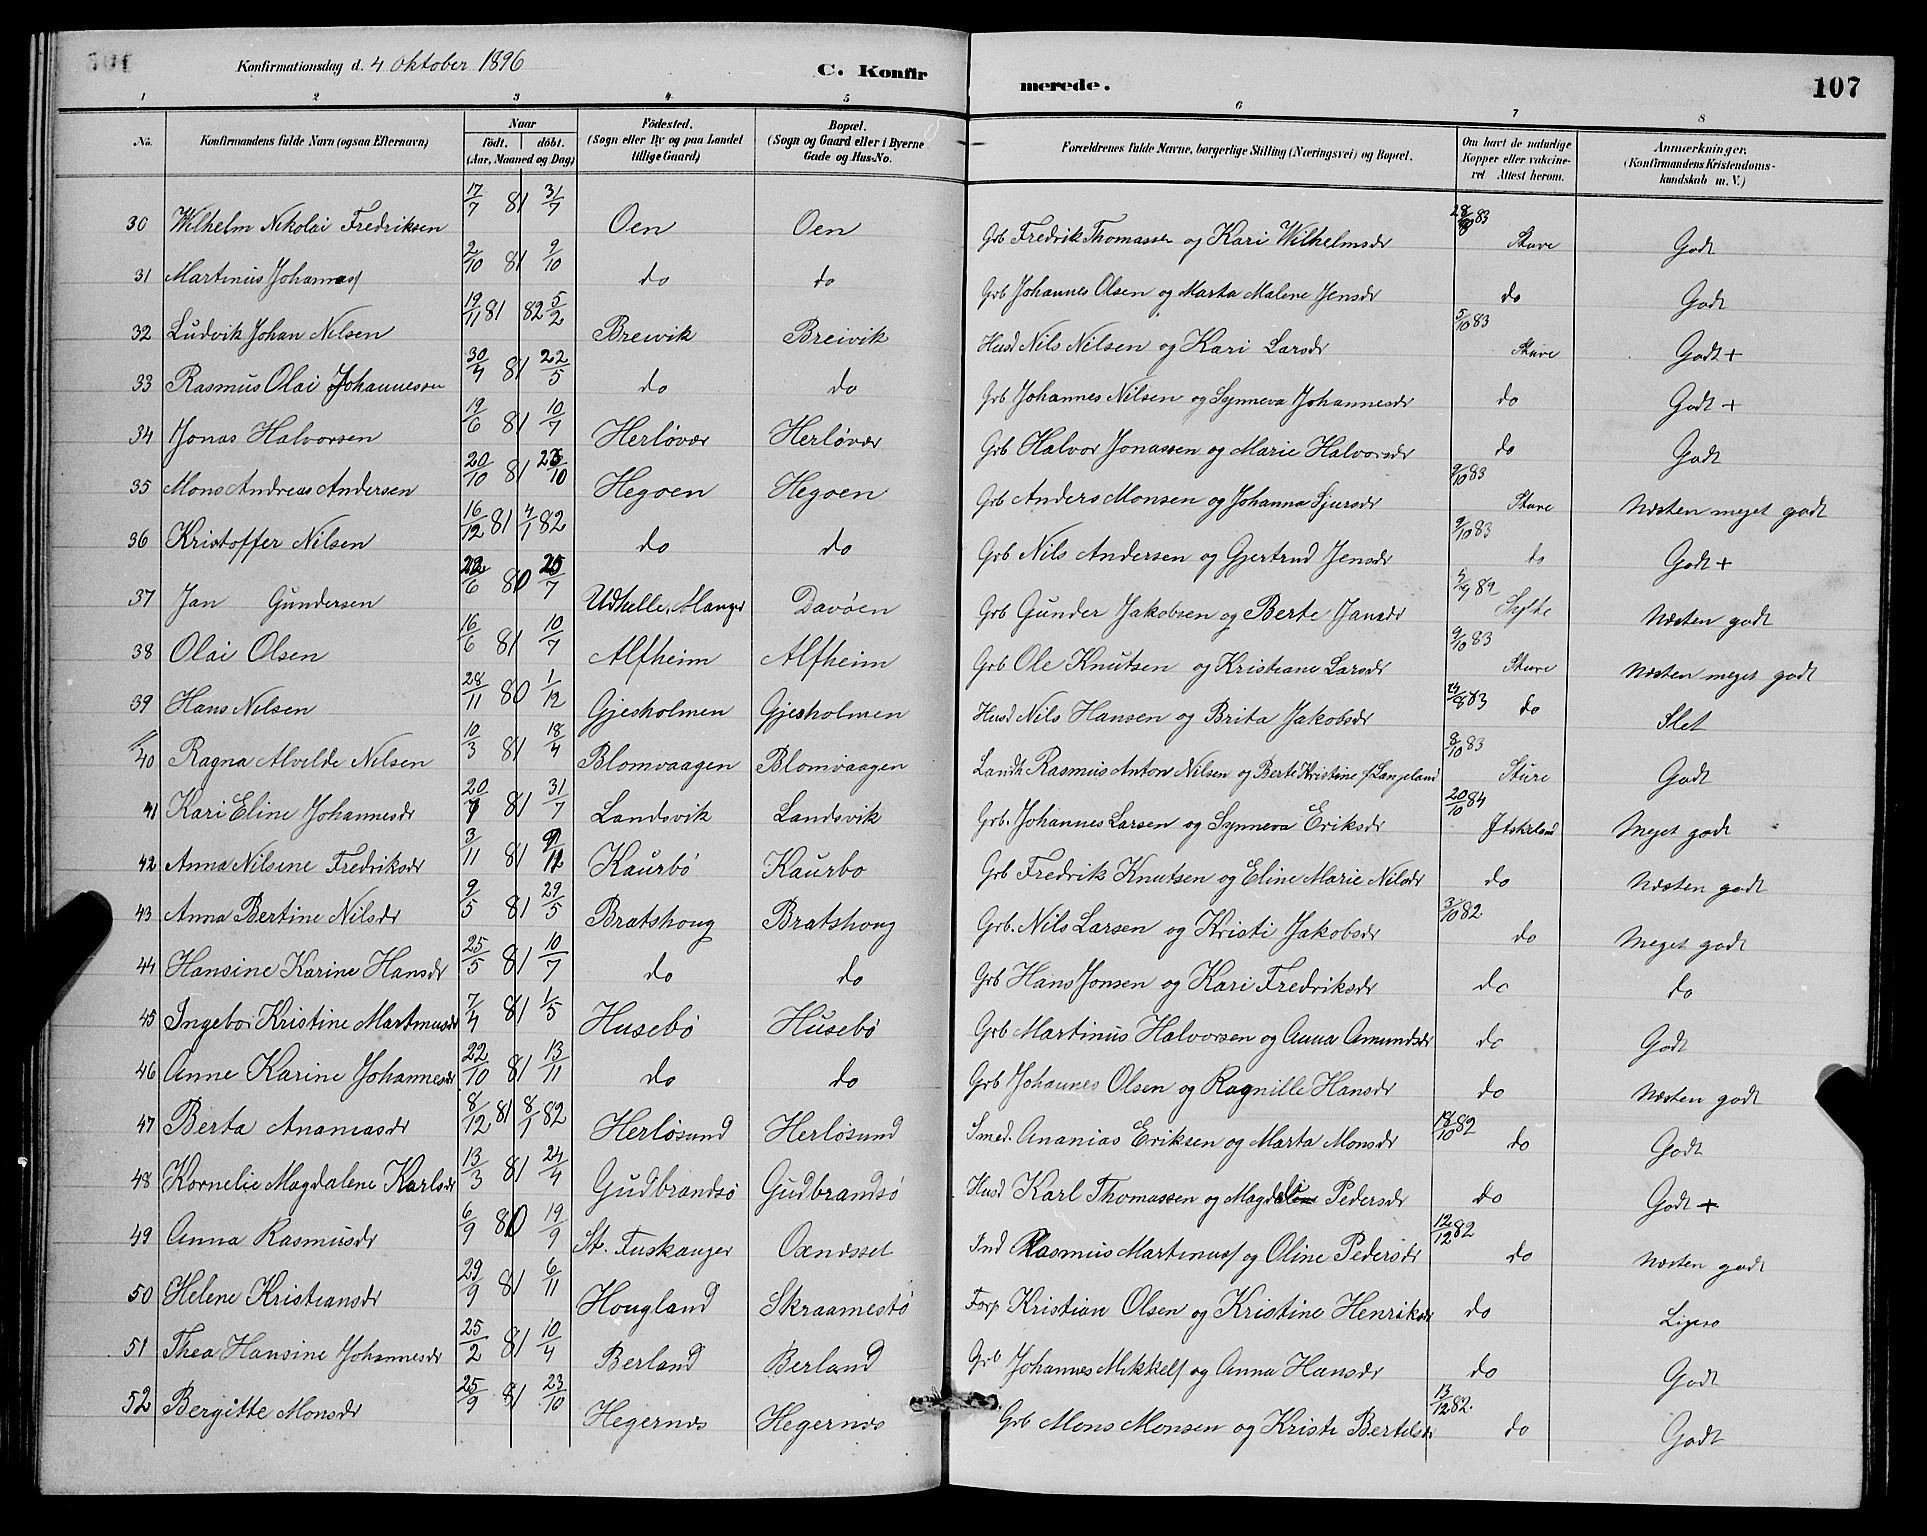 Konfirmationsdag d. 4 Oktober 1896 C. Konfir merede. 107
1 2 3 4 5 6 7 8
No. Konfirmandens fulde Navn (ogsaa Efternavn) Naar födt. döbt. (Aar, Maaned og Dag) Födested. (Sogn eller By og paa Landet tillige Gaard) Bopæl. (Sogn og Gaard eller i Byerne Gade og Hus-No. Forældrenes fulde Navne, borgerlige Stilling (Næringsvei) og Bopæl. Om havt de naturlige Kopper eller vakcineret Attest herom. Anmærkninger. (Konfirmandens Kristendomskundskab m. V.)
30 Wilhelm Nikolai Fredriksen 17/7 81 31/7 Oen Oen Grb Fredrik Thomassen og Kari Wilhelmsdr 83 Sture Godt
31 Martinus Johannes/ 2/10 81 9/10 do do Grb Johannes Olsen og Marta Malene Jensdr do Godt
32 Ludvik Johan Nilsen 19/11 81 82 5/2 Breivik Breivik Husd Nils Nilsen og Kari Larsdr 5/10 83 Sture Godt +
33 Rasmus Olai Johannessen 30/4 81 22/5 do do Grb Johannes Nilsen og Synneva Johannesdr do Godt +
34 Jonas Halvorsen 19/6 81 10/7 Herlövær Herlövær Grb Halvor Jonassen og Marie Halvorsdr do Godt
35 Mons Andreas Andersen 20/10 81 23/10 Hegoen Hegoen Grb Anders Monsen og Johanna Sjursdr 9/10 83 Sture Næsten meget godt
36 Kristoffer Nilsen 16/12 81 4/1 82 do do Grb Nils Andersen og Gjertrud Jensdr 9/10 83 do Godt +
37 Jan Gundersen 22/6 80 25/7 Udhelle, Manger Davöen Grb Gunder Jakobsen og Berte Jansdr Sylte Næsten godt
38 Olai Olsen 16/6 81 10/7 Alfheim Alfheim Grb Ole Knutsen og Kristiane Larsdr 9/10 83 Sture Næsten meget godt
39 Hans Nilsen 28/11 80 1/12 Gjesholmen Gjesholmen Husd Nils Hansen og Brita Jakobsdr 24/8 83 do Slet
40 Ragna Alvilde Nilsen 10/3 81 18/4 Blomvaagen Blomvaagen Landh. Rasmus Anton Nilsen og Berte Kristine f. Langeland 8/10 83 Sture Godt
41 Kari Eline Johannesdr 20/7 81 31/7 Landsvik Landsvik Grb. Johannes Larsen og Synneva Eriksdr 20/10 84 Meget godt
42 Anna Nilsine Fredriksdr 3/11 81 Kaurbö Kaurbo Grb Fredrik Knutsen og Eline Marie Nilsdr do Næsten godt
43 Anna Bertine Nilsdr 9/5 81 29/5 Bratshoug Bratshoug Grb. Nils Larsen og Kristi Jakobsdr 3/10 82 do Meget godt
44 Hansine Karine Hansdr 25/5 81 10/7 do do Grb Hans Jonsen og Kari Fredriksdr do do
45 Ingebor Kristine Martinusdr 7/4 81 1/5 Husebö Husebö Grb Martinus Halvorsen og Anna Amundsdr do Godt
46 Anne Karine Johannesdr 22/10 81 13/11 do do Grb Johannes Olsen og Ragnille Hansdr do Næsten godt
47 Berta Ananiasdr 8/12 81 8/1 82 Herlösund Herlösund Smed. Ananias Eriksen og Marta Monsdr 14/10 82 do Godt
48 Kornelie Magdalene Karlsdr 13/3 81 24/4 Gudbrandsö Gudbrandsö Husd Karl Thomassen og Magdalene Pedersdr do Godt +
49 Anna Rasmusdr 6/9 80 19/9 St. Tuskanger Oxnesset Ind Rasmus Martinus/ og Oline Pedersdr 12/12 82 do Næsten godt
50 Helene Kristiansdr 29/9 81 6/11 Hougland Skraamestö Forp Kristian Olsen og Kristine Henriksdr do Ligesa
51 Thea Hansine Johannesdr 25/2 81 10/4 Berland Berland Grb Johannes Mikkels/ og Anna Hansdr do Godt
52 Bergitte Monsdr 25/9 81 23/10 Hegernes Hegernes Grb Mons Monsen og Kristi Bertelsdr 13/12 82. do Godt